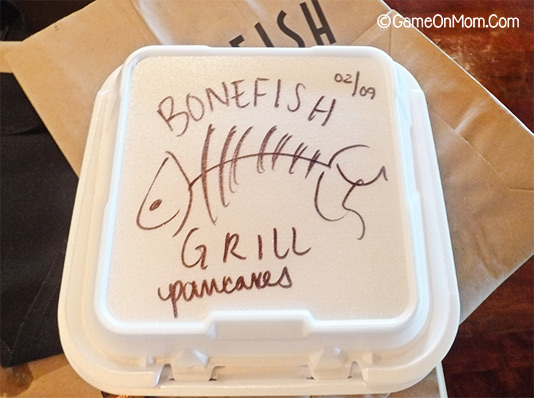 ©GameOnMom.Com
FISH
BONEFISH
02/09
GRILL
pancakes